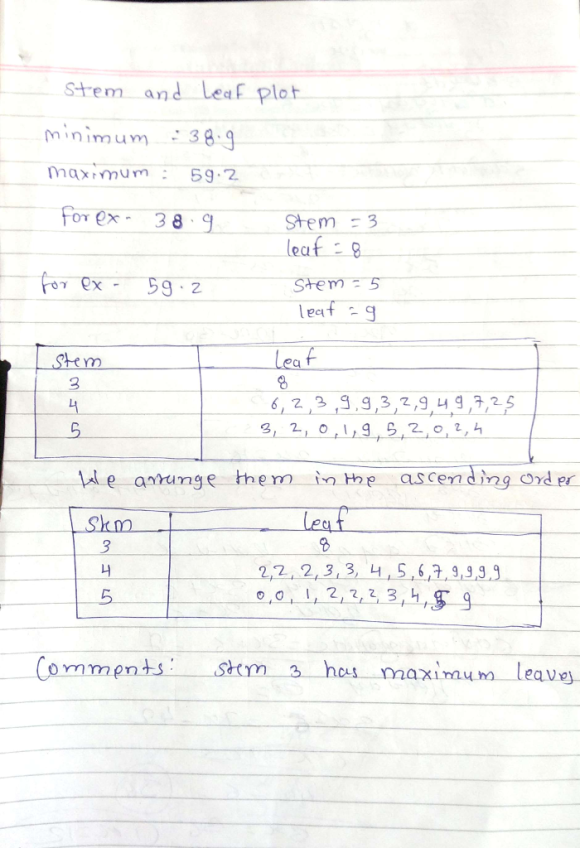 Stem and Leaf plot
minimum : 38.9
maximum : 59.2
for ex - 38.9 Stem = 3
leaf = 8
for ex - 59.2 Stem = 5
leaf = 9
Stem Leaf
3 8
4 6, 2, 3, 9, 9, 3, 2, 9, 4, 9, 7, 2, 5
5 3, 2, 0, 1, 9, 5, 2, 0, 2, 4
We arrange them in the ascending order
Stem Leaf
3 8
4 2, 2, 2, 3, 3, 4, 5, 6, 7, 9, 9, 9, 9
5 0, 0, 1, 2, 2, 2, 3, 4, 5 9
Comments: stem 3 has maximum leaves